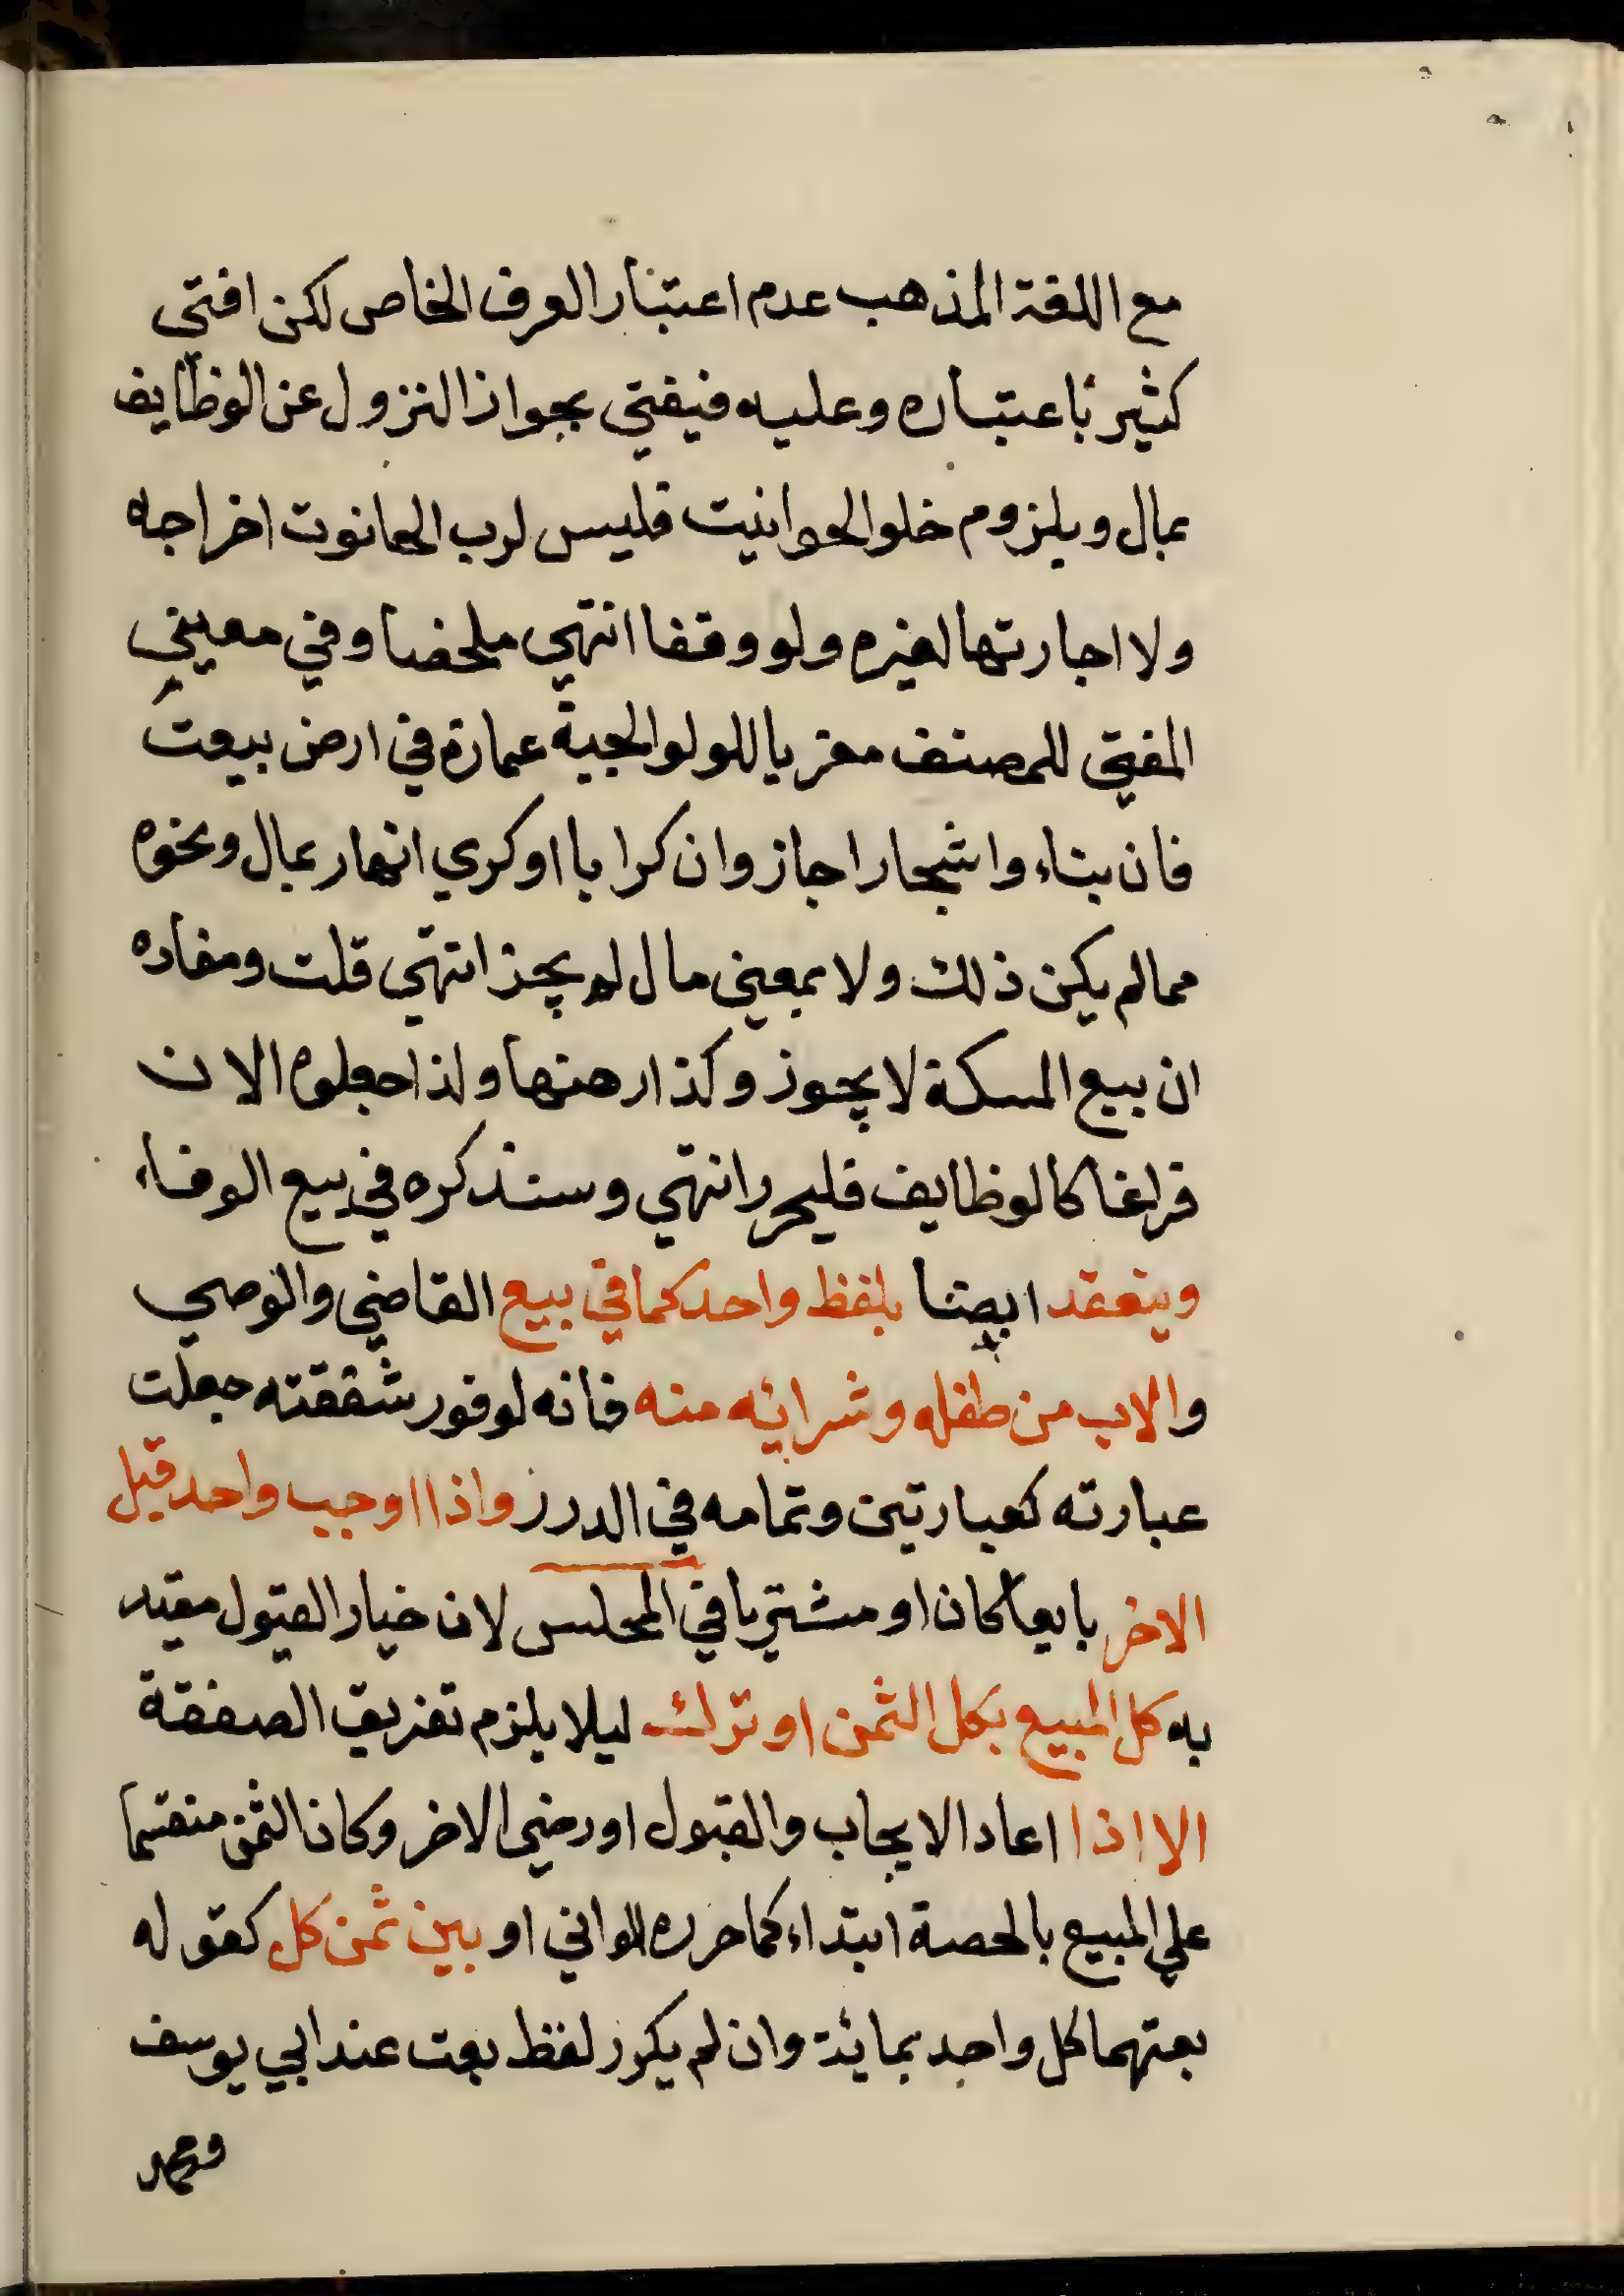 مع اللغة المذهب عدم اعتبار العرف الخاص لكن افتى
كثير باعتباره وعليه فيفتى بجواز النزول عن الوظايف
بمال وبلزوم خلو الحوانيت فليس لرب الحانوت اخراجه
ولا اجارتها لغيره ولو وقفا انتهى ملخصا وفي معين
المفتي للمصنف معزيا للولوالجية عمارة في ارض بيعت
فان بناء واشجارا جاز وان كرابا او كري انهار بمال ونحوه
مما لم يكن ذلك ولا بمعنى مال لم يجز انتهى قلت ومفاده
ان بيع المسكة لا يجوز وكذا رهنها ولذا جعلوه الان
فراغا كالوظايف فليحرر انتهى وسنذكره في بيع الوفاء
وينعقد ايضا بلفظ واحد كما في بيع القاضي والوصي
والاب من طفله وشرائه منه فانه لوفور شفقته جعلت
عبارته كعبارتين وتمامه في الدرر واذا اوجب واحد قبل
الاخر بايعا كان او مشتريا في المجلس لان خيار القبول مقيد
به كل المبيع بكل الثمن او ترك ليلا يلزم تفريق الصفقة
الا اذا اعاد الايجاب والقبول او رضي الاخر وكان الثمن منقسما
على المبيع بالحصة ابتداء كما حرره الواني او بين ثمن كل كقوله
بعتهما كل واحد بمائة وان لم يكرر لفظ بعت عند ابي يوسف
ومحمد